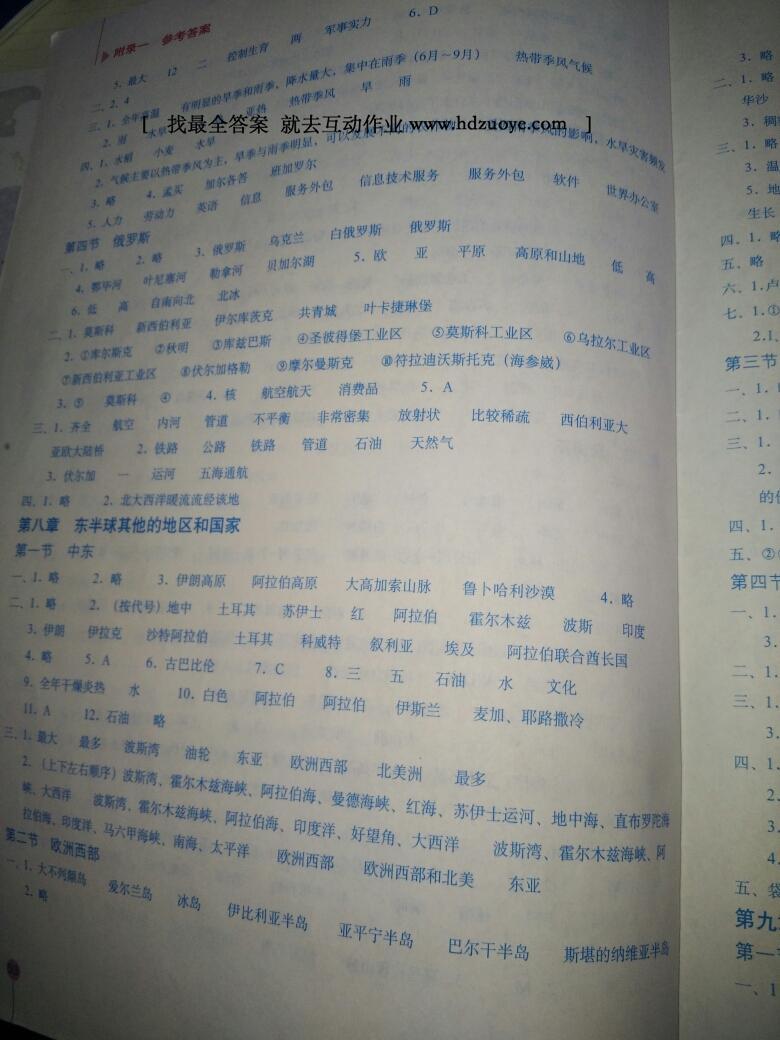 附录一 参考答案
5. 最大 12 二 控制生育 两 军事实力 6. D
二、2. 4
三、1. 全年高温 有明显的旱季和雨季，降水量大，集中在雨季（6月～9月） 热带季风气候
2. 雨 水旱 亚热 热带季风 旱 雨
[ 找最全答案 就去互动作业 www.hdzuoye.com ]
四、1. 水稻 小麦 水旱
2. 气候主要以热带季风为主，旱季与雨季明显，可以发展 的影响，水旱灾害频发
3. 略 4. 孟买 加尔各答 班加罗尔
5. 人力 劳动力 英语 信息 服务外包 信息技术服务 服务外包 软件 世界办公室
第四节 俄罗斯
一、1. 略 2. 略 3. 俄罗斯 乌克兰 白俄罗斯 俄罗斯
4. 鄂毕河 叶尼塞河 勒拿河 贝加尔湖 5. 欧 亚 平原 高原和山地 低 高
6. 低 高 自南向北 北冰
二、1. 莫斯科 新西伯利亚 伊尔库茨克 共青城 叶卡捷琳堡
2. ①库尔斯克 ②秋明 ③库兹巴斯 ④圣彼得堡工业区 ⑤莫斯科工业区 ⑥乌拉尔工业区
⑦新西伯利亚工业区 ⑧伏尔加格勒 ⑨摩尔曼斯克 ⑩符拉迪沃斯托克（海参崴）
3. ⑤ 莫斯科 ④ 4. 核 航空航天 消费品 5. A
三、1. 齐全 航空 内河 管道 不平衡 非常密集 放射状 比较稀疏 西伯利亚大
亚欧大陆桥 2. 铁路 公路 铁路 管道 石油 天然气
3. 伏尔加 一 运河 五海通航
四、1. 略 2. 北大西洋暖流流经该地
第八章 东半球其他的地区和国家
第一节 中东
一、1. 略 2. 略 3. 伊朗高原 阿拉伯高原 大高加索山脉 鲁卜哈利沙漠 4. 略
二、1. 略 2. （按代号）地中 土耳其 苏伊士 红 阿拉伯 霍尔木兹 波斯 印度
3. 伊朗 伊拉克 沙特阿拉伯 土耳其 科威特 叙利亚 埃及 阿拉伯联合酋长国
4. 略 5. A 6. 古巴比伦 7. C 8. 三 五 石油 水 文化
9. 全年干燥炎热 水 10. 白色 阿拉伯 阿拉伯 伊斯兰 麦加、耶路撒冷
11. A 12. 石油 略
三、1. 最大 最多 波斯湾 油轮 东亚 欧洲西部 北美洲 最多
2. （上下左右顺序）波斯湾、霍尔木兹海峡、阿拉伯海、曼德海峡、红海、苏伊士运河、地中海、直布罗陀海
峡、大西洋 波斯湾、霍尔木兹海峡、阿拉伯海、印度洋、好望角、大西洋 波斯湾、霍尔木兹海峡、阿
拉伯海、印度洋、马六甲海峡、南海、太平洋 欧洲西部 欧洲西部和北美 东亚
第二节 欧洲西部
一、1. 大不列颠岛 爱尔兰岛 冰岛 伊比利亚半岛 亚平宁半岛 巴尔干半岛 斯堪的纳维亚半岛
2. 略
3. 略
二、1. 略
华沙
三、1. 略
3. 温
5. 地
生长
四、1. 略
五、略
六、1. 卢
七、1. ①
2. 1.
第三节
一、1.
二、1.
三、1.
2.
的
四、1.
五、②
第四节
一、1.
3.
二、1.
三、1.
3.
四、1.
2.
3.
4.
五、袋
第九
第一
一、1